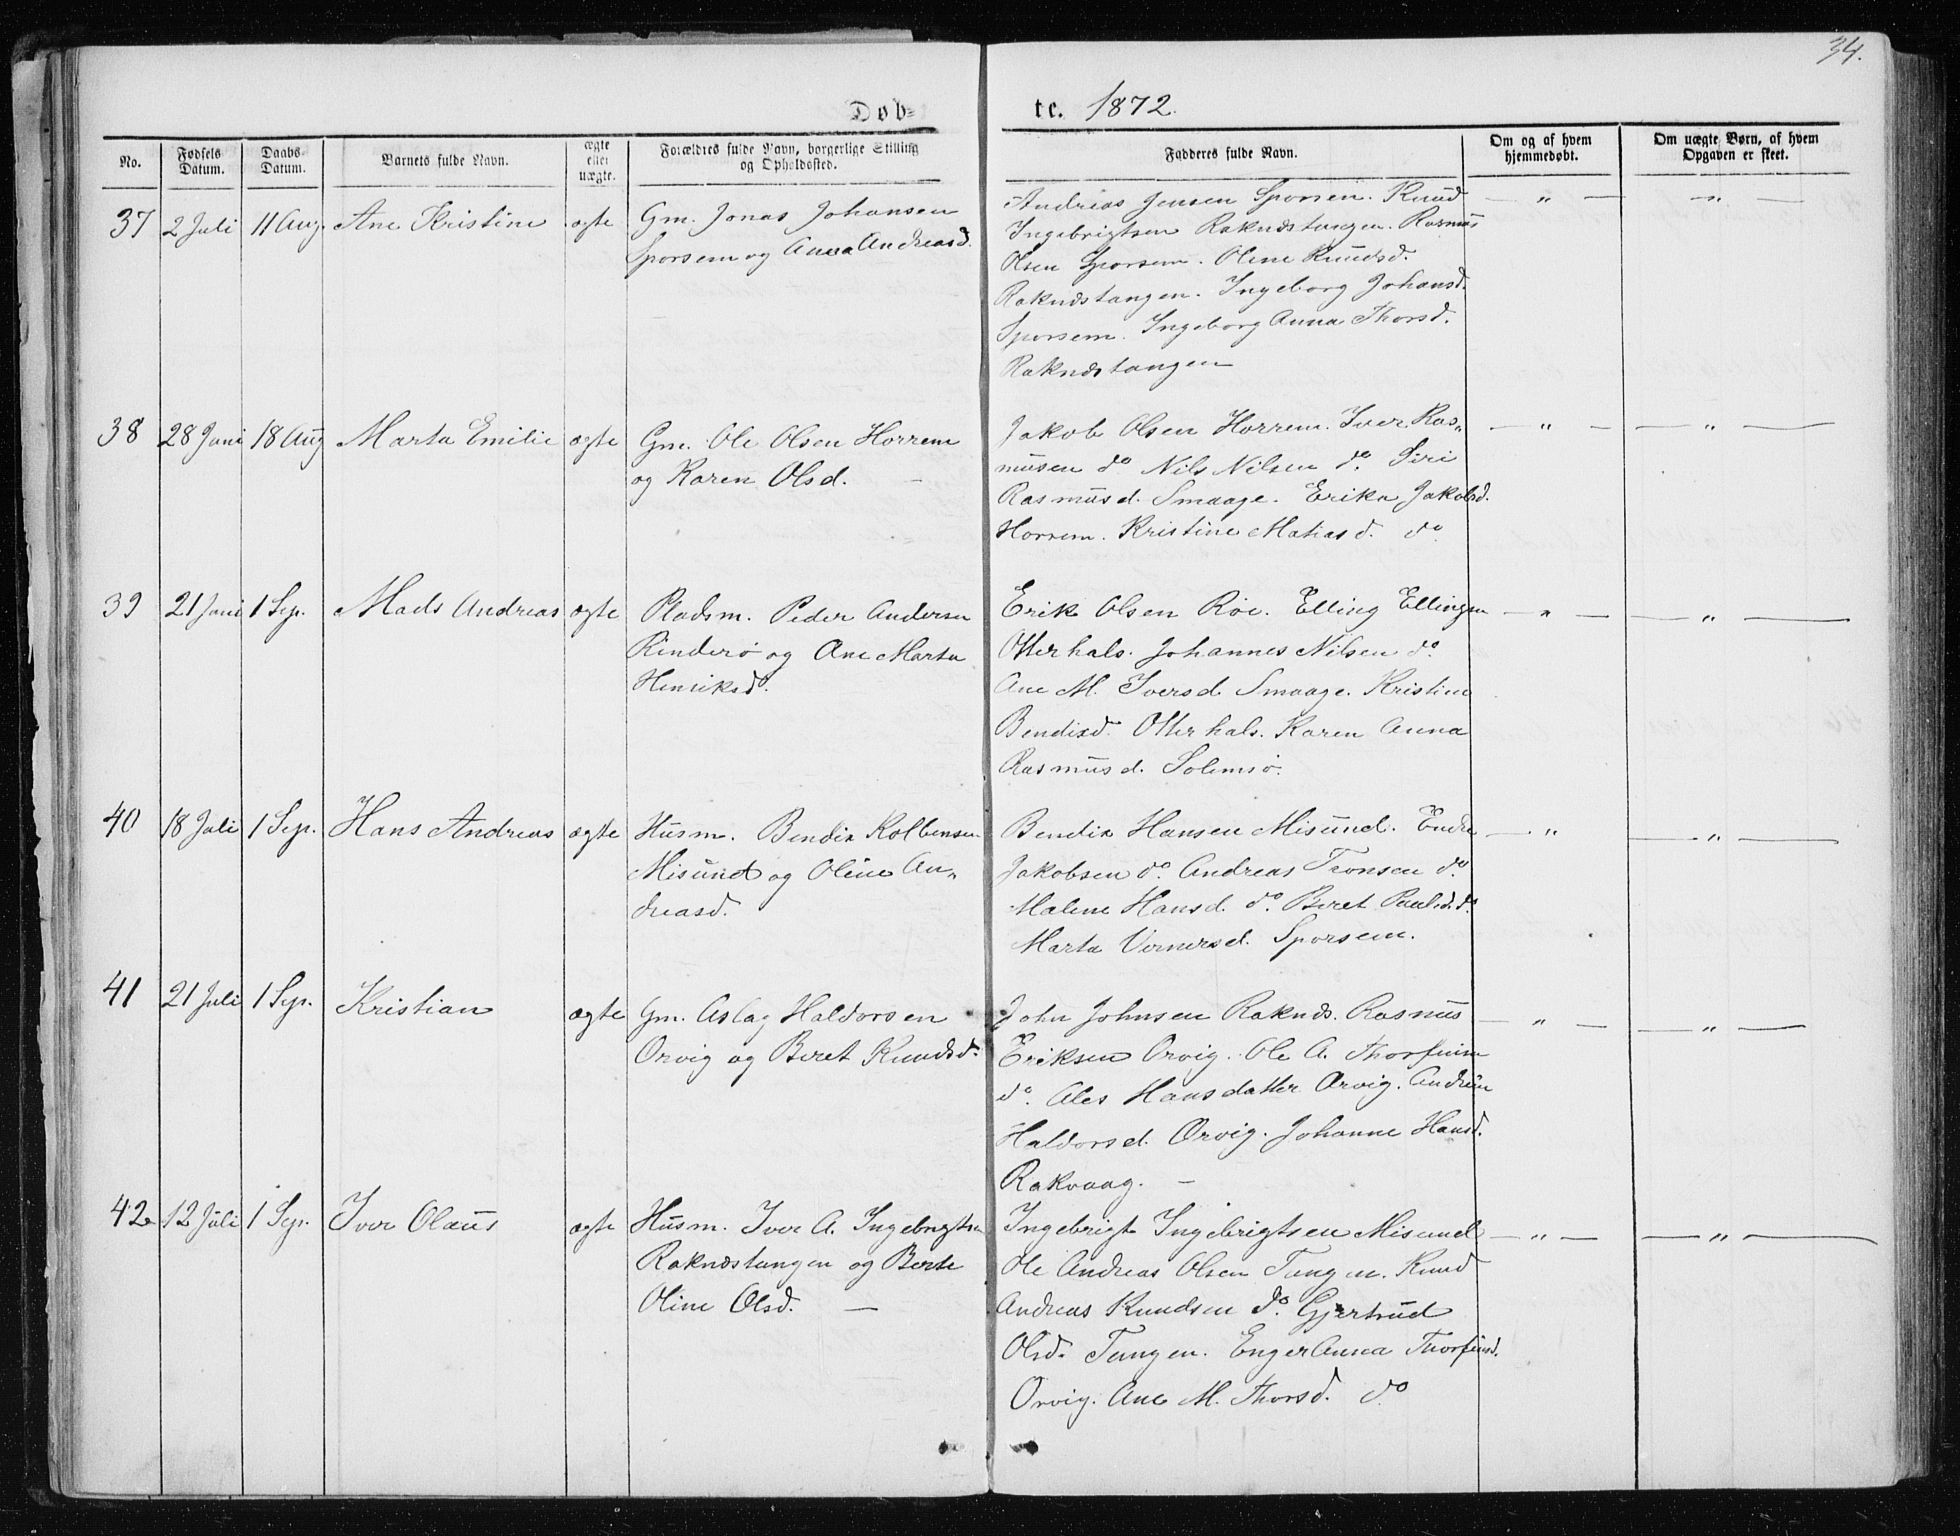 34.
Døb-
te. 1872.
No.
Fødsels Datum.
Daabs-Datum.
Barnets fulde Navn.
ægte eller uægte.
Forældres fulde Navn, borgerlige Stilling
og Opholdssted.
Fadderes fulde Navn.
Om og af hvem
hjemmedøbt.
Om uægte Børn, af hvem
Opgaven er skeet.
37 2 Juli 11 Aug. Ane Kristine ægte Gm. Jonas Johansen
Sporsem og Anna Andreasd.
Andreas Jensen Sporsem. Knud — " — — " —
Ingebrigtsen Raknæstangen. Rasmus
Olsen Sporsem. Oline Knudsd.
Raknæstangen. Ingeborg Johansd.
Sporsem. Ingeborg Anna Thorsd.
Raknæstangen
38 28 Juni 18 Aug Marta Emilie ægte Gm. Ole Olsen Horrem
og Karen Olsd. —
Jakob Olsen Horrem. Iver Ras„ — " — — " —
musen do Nils Nilsen do. Siri
Rasmusd. Smaage. Erika Jakobsd.
Horrem. Kristine Matiasd. do
39 21 Juni 1 Sep. Mads Andreas ægte Pladsm. Peder Andersen
Rinderø og Ane Marta
Henriksd.
Erik Olsen Røe. Elling Ellingsen — " — — " —
Otterhals. Johannes Nilsen do.
Ane M. Iversd. Smaage. Kristine
Bendixd. Otterhals. Karen Anna
Rasmusd. Solemsø.
40 18 Juli 1 Sep. Hans Andreas ægte Husm. Bendix Kolbensen
Misund og Oline An„
dreasd.
Bendix Hansen Misund. Endre — " — " —
Jakobsen do. Andreas Tronsen do.
Malene Hansd. do. Beret Paulsd. do.
Marta Vernersd. Sporsem.
41 21 Juli 1 Sep. Kristian ægte Gm. Aslag Haldorsen
Orvig og Beret Knudsd.
John Johnsen Raknæs. Rasmus — " — — " —
Eriksen Orvig. Ole A. Thorfinsen
do. Ales Hansdatter Orvig. Andrine
Haldorsd. Orvig. Johanne Hansd.
Rakvaag. —
42 12 Juli 1 Sep. Iver Olaus ægte Husm. Iver A. Ingebrigtsen
Raknæstangen og Berte
Oline Olsd. —
Ingebrigt Ingebrigtsen Misund — " — — " —
Ole Andreas Olsen Tangen. Knud
Andreas Knudsen do. Gjertrud
Olsd. Tangen. Enger Anna Thorfinsd.
Orvig. Ane M. Thorsd. do